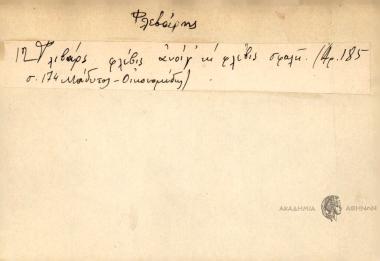 Φλεβάρης
17 Φλιβάρς φλέβις ἀνοίγ' κὶ φλέβις σφαλᾷ. (Ἀρ. 185
σ. 174 Μάδυτος - Οἰκονομίδης)
ΑΚΑΔΗΜΙΑ ΑΘΗΝΩΝ